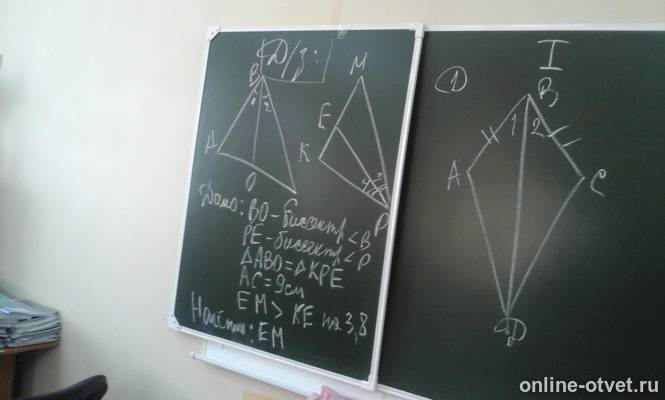 Д/з:
B
1 2
A
O
M
E
K
P
Дано: BO - биссектр <B
PE - биссектр <P
△ABO = △KPE
AC = 9см
EM > KE на 3,8
Найти: EM
I
①
B
1 2
A
C
D
online-otvet.ru